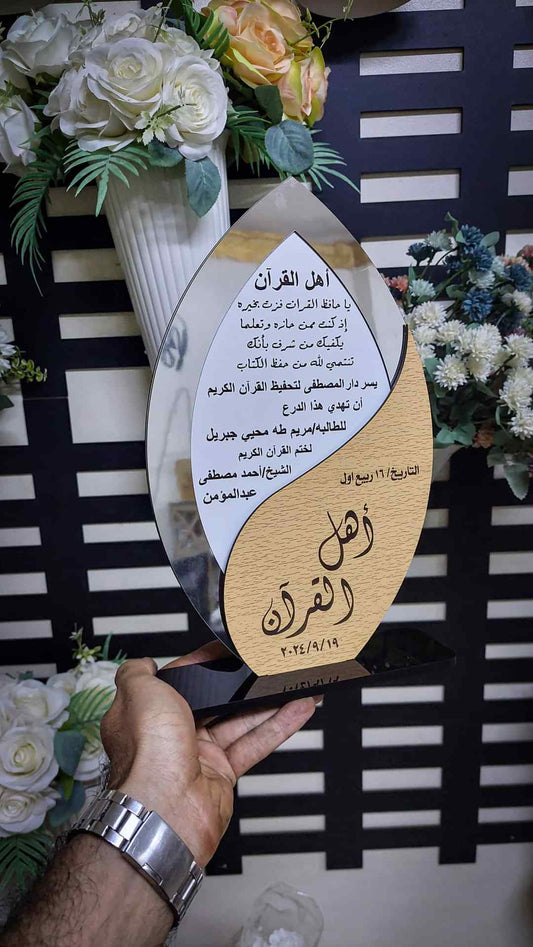 أهل القرآن
يا حافظ القرآن فزت بخيره
إذ كنت ممن حازه وتعلما
يكفيك من شرف بأنك
تنتمي لله من حفظ الكتاب
يسر دار المصطفى لتحفيظ القرآن الكريم
أن تهدي هذا الدرع
للطالبه/مريم طه محيي جبريل
لختم القرآن الكريم
الشيخ/أحمد مصطفى
عبدالمؤمن
التاريخ/ ١٦ ربيع اول
أهل
القرآن
٢٠٢٤/٩/١٩